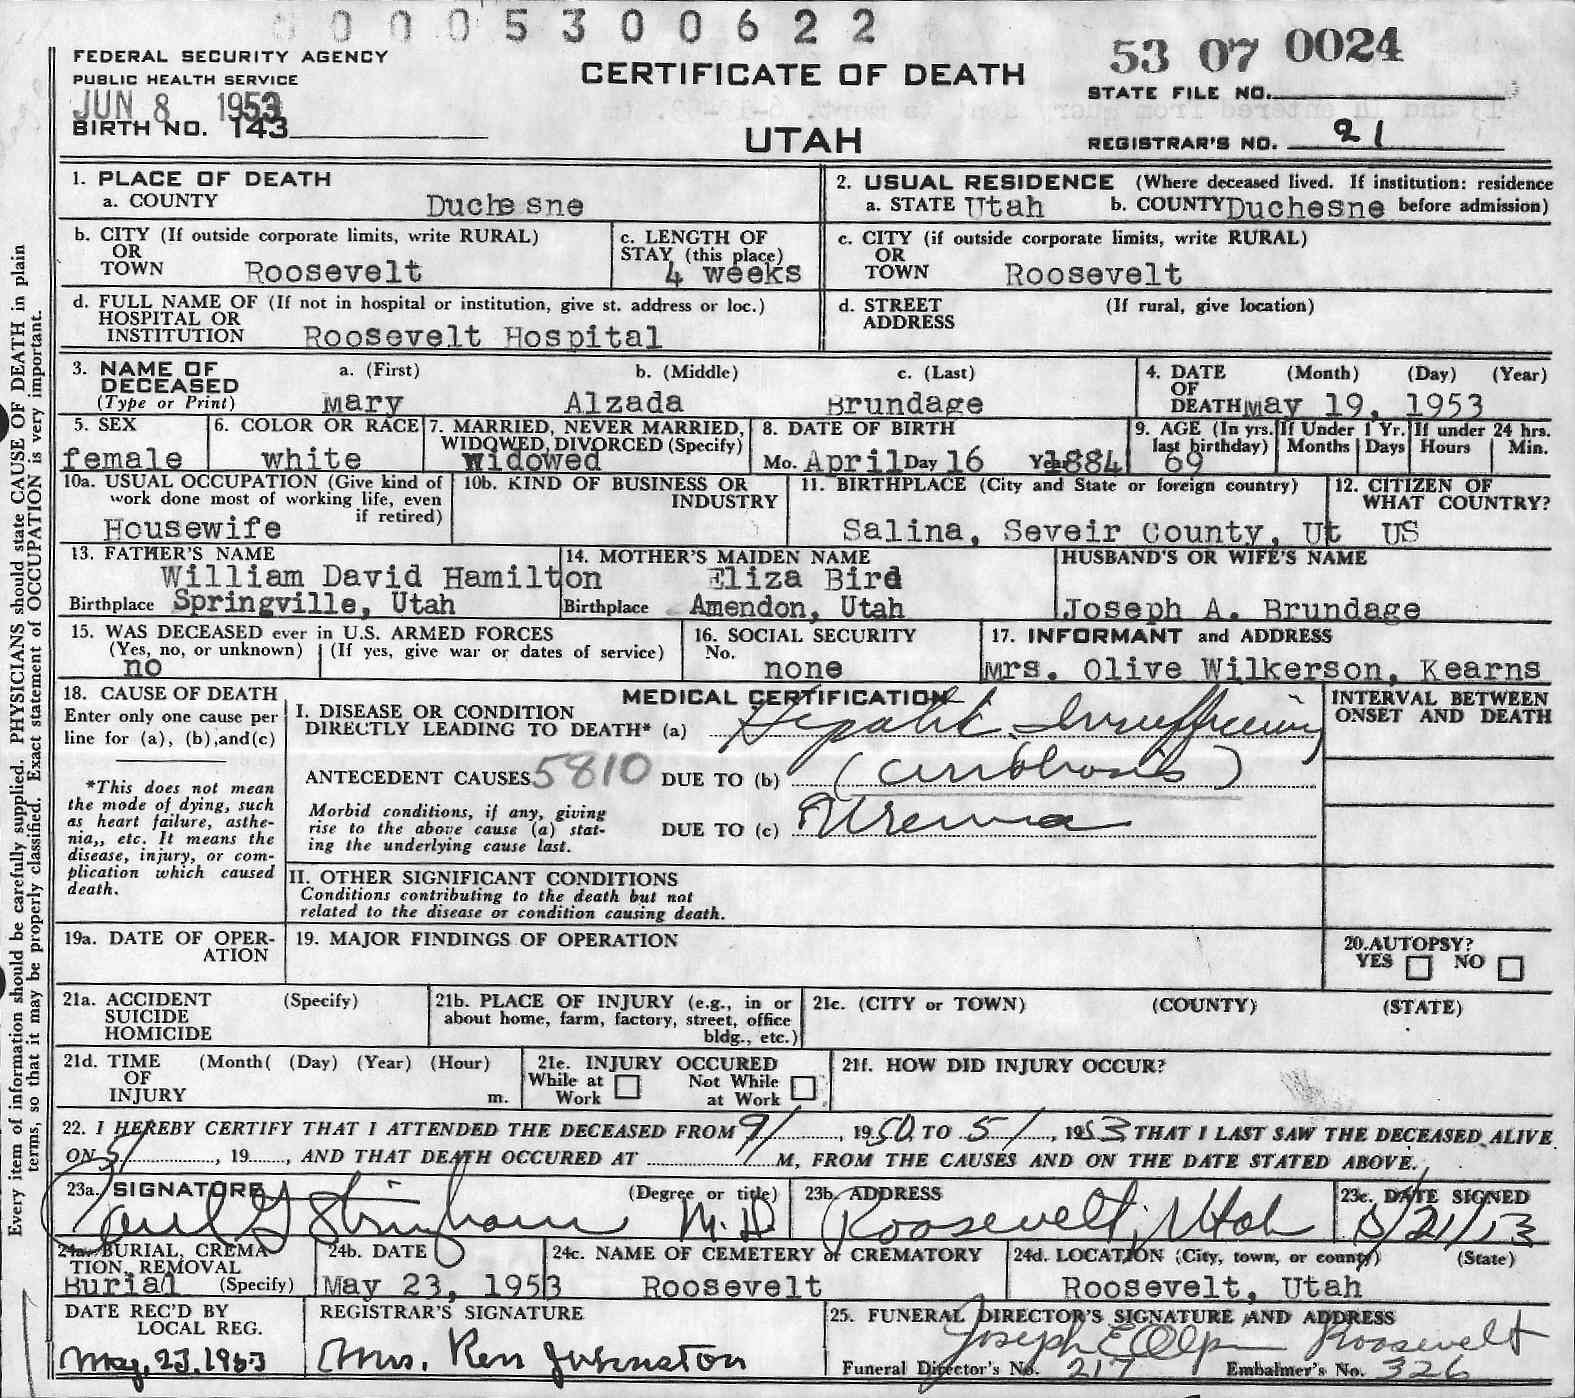 0005300622
FEDERAL SECURITY AGENCY
PUBLIC HEALTH SERVICE
JUN 8 1953
BIRTH NO. 143
CERTIFICATE OF DEATH
UTAH
53 07 0024
STATE FILE NO.
REGISTRAR'S NO. 21
Every item of information should be carefully supplied. PHYSICIANS should state CAUSE OF DEATH in plain
terms, so that it may be properly classified. Exact statement of OCCUPATION is very important.
1. PLACE OF DEATH
a. COUNTY Duchesne
2. USUAL RESIDENCE (Where deceased lived. If institution: residence
a. STATE Utah b. COUNTY Duchesne before admission)
b. CITY (If outside corporate limits, write RURAL)
OR
TOWN Roosevelt
c. LENGTH OF
STAY (this place)
4 weeks
c. CITY (if outside corporate limits, write RURAL)
OR
TOWN Roosevelt
d. FULL NAME OF (If not in hospital or institution, give st. address or loc.)
HOSPITAL OR
INSTITUTION Roosevelt Hospital
d. STREET (If rural, give location)
ADDRESS
3. NAME OF a. (First) b. (Middle) c. (Last)
DECEASED
(Type or Print) Mary Alzada Brundage
4. DATE (Month) (Day) (Year)
OF
DEATH May 19, 1953
5. SEX
female
6. COLOR OR RACE
white
7. MARRIED, NEVER MARRIED,
WIDOWED, DIVORCED (Specify)
Widowed
8. DATE OF BIRTH
Mo. April Day 16 Year 1884
9. AGE (In yrs. last birthday)
69
If Under 1 Yr.
Months Days
If under 24 hrs.
Hours Min.
10a. USUAL OCCUPATION (Give kind of
work done most of working life, even
if retired)
Housewife
10b. KIND OF BUSINESS OR
INDUSTRY
11. BIRTHPLACE (City and State or foreign country)
Salina, Seveir County, Ut
12. CITIZEN OF
WHAT COUNTRY?
US
13. FATHER'S NAME
William David Hamilton
Birthplace Springville, Utah
14. MOTHER'S MAIDEN NAME
Eliza Bird
Birthplace Amendon, Utah
HUSBAND'S OR WIFE'S NAME
Joseph A. Brundage
15. WAS DECEASED ever in U.S. ARMED FORCES
(Yes, no, or unknown) (If yes, give war or dates of service)
no
16. SOCIAL SECURITY
No.
none
17. INFORMANT and ADDRESS
Mrs. Olive Wilkerson, Kearns
18. CAUSE OF DEATH
Enter only one cause per
line for (a), (b), and (c)
*This does not mean
the mode of dying, such
as heart failure, asthe-
nia,, etc. It means the
disease, injury, or com-
plication which caused
death.
MEDICAL CERTIFICATION
I. DISEASE OR CONDITION
DIRECTLY LEADING TO DEATH* (a) Hepatic Insufficiency
ANTECEDENT CAUSES 5810 DUE TO (b) (cirrhosis)
Morbid conditions, if any, giving
rise to the above cause (a) stat-
ing the underlying cause last.
DUE TO (c) Uremia
INTERVAL BETWEEN
ONSET AND DEATH
II. OTHER SIGNIFICANT CONDITIONS
Conditions contributing to the death but not
related to the disease or condition causing death.
19a. DATE OF OPER-
ATION
19. MAJOR FINDINGS OF OPERATION
20. AUTOPSY?
YES NO
21a. ACCIDENT (Specify)
SUICIDE
HOMICIDE
21b. PLACE OF INJURY (e.g., in or
about home, farm, factory, street, office
bldg., etc.)
21c. (CITY or TOWN) (COUNTY) (STATE)
21d. TIME (Month( (Day) (Year) (Hour)
OF
INJURY m.
21e. INJURY OCCURED
While at Work Not While at Work
21f. HOW DID INJURY OCCUR?
22. I HEREBY CERTIFY THAT I ATTENDED THE DECEASED FROM 9/, 1950, TO 5/, 1953 THAT I LAST SAW THE DECEASED ALIVE
ON 5/, 19, AND THAT DEATH OCCURED AT M, FROM THE CAUSES AND ON THE DATE STATED ABOVE.
23a. SIGNATURE (Degree or title)
Paul G Stringham M.D.
23b. ADDRESS
Roosevelt, Utah
23c. DATE SIGNED
5/21/53
24a. BURIAL, CREMA
TION, REMOVAL
Burial (Specify)
24b. DATE
May 23, 1953
24c. NAME OF CEMETERY or CREMATORY
Roosevelt
24d. LOCATION (City, town, or county) (State)
Roosevelt, Utah
DATE REC'D BY
LOCAL REG.
May, 23, 1953
REGISTRAR'S SIGNATURE
Mrs. Ken Johnston
25. FUNERAL DIRECTOR'S SIGNATURE AND ADDRESS
Joseph E Olpin Roosevelt
Funeral Director's No. 217 Embalmer's No. 326